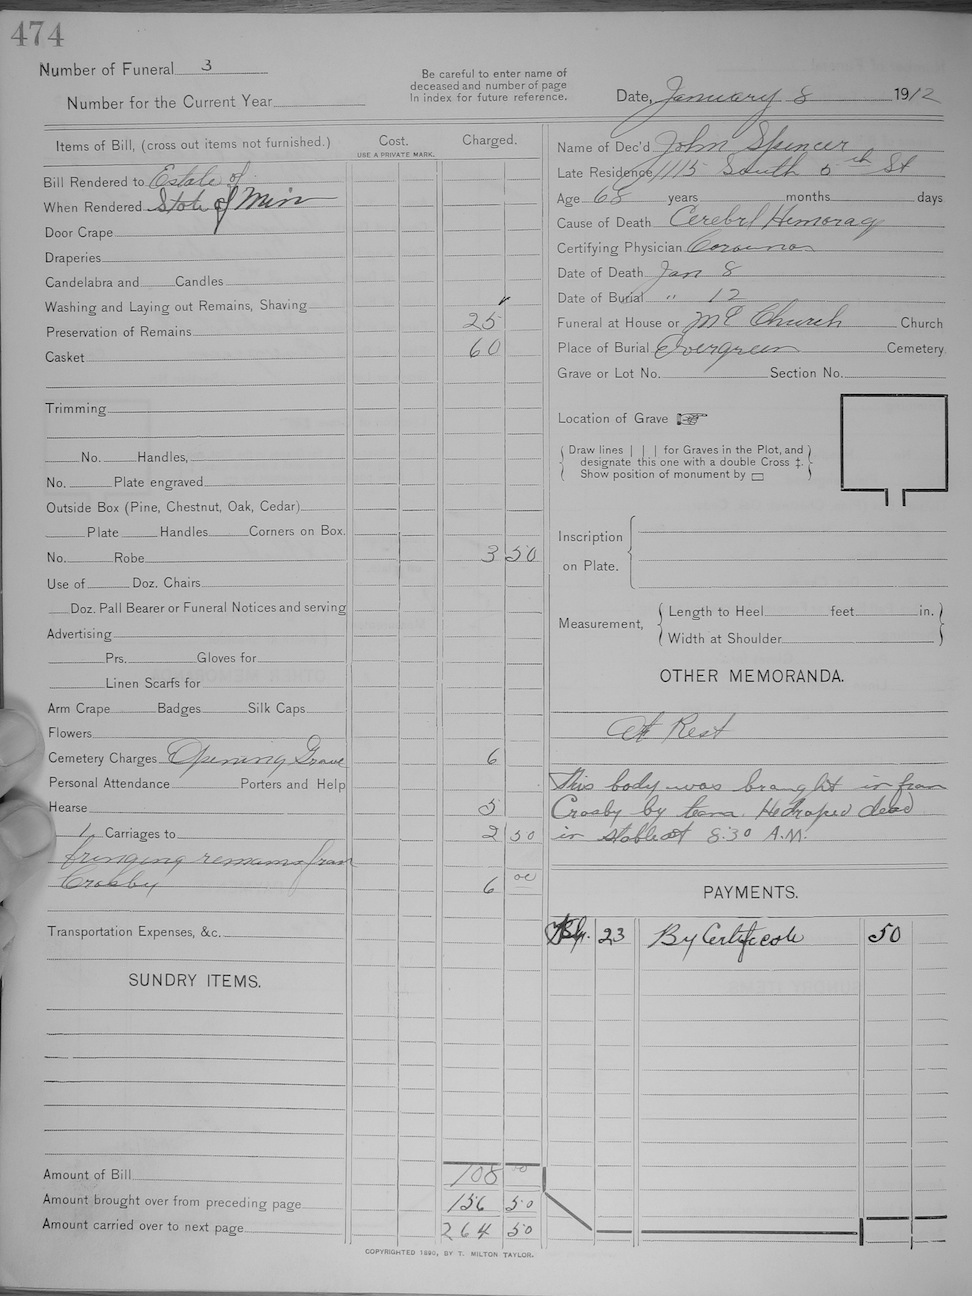 474
Number of Funeral 3
Number for the Current Year
Be careful to enter name of
deceased and number of page
in index for future reference.
Date, January 8 1912
Items of Bill, (cross out items not furnished.)
Cost.
USE A PRIVATE MARK.
Charged.
Bill Rendered to Estate of
When Rendered State of Minn
Door Crape
Draperies
Candelabra and Candles
Washing and Laying out Remains, Shaving
Preservation of Remains 25
Casket 60
Trimming
No. Handles,
No. Plate engraved
Outside Box (Pine, Chestnut, Oak, Cedar)
Plate Handles Corners on Box.
No. Robe 3 50
Use of Doz. Chairs
Doz. Pall Bearer or Funeral Notices and serving
Advertising
Prs. Gloves for
Linen Scarfs for
Arm Crape Badges Silk Caps
Flowers
Cemetery Charges Opening Grave 6
Personal Attendance Porters and Help
Hearse 5
1 Carriages to 2 50
bringing remains from
Crosby 6 00
Transportation Expenses, &c.
SUNDRY ITEMS.
Amount of Bill 108
Amount brought over from preceding page 156 50
Amount carried over to next page 264 50
Name of Dec'd John Spencer
Late Residence 1115 South 5th St
Age 68 years months days
Cause of Death Cerebrl Hemorag
Certifying Physician
Date of Death Jan 8
Date of Burial " 12
Funeral at House or ME Church Church
Place of Burial Evergreen Cemetery
Grave or Lot No. Section No.
Location of Grave
Draw lines | | | for Graves in the Plot, and
designate this one with a double Cross ‡.
Show position of monument by
Inscription
on Plate.
Measurement,
Length to Heel feet in.
Width at Shoulder
OTHER MEMORANDA.
At Rest
This body was brought in from
Crosby by team. He droped dead
in stable at 8:30 A.M.
PAYMENTS.
23 By Certificate 50
COPYRIGHTED 1890, BY T. MILTON TAYLOR.